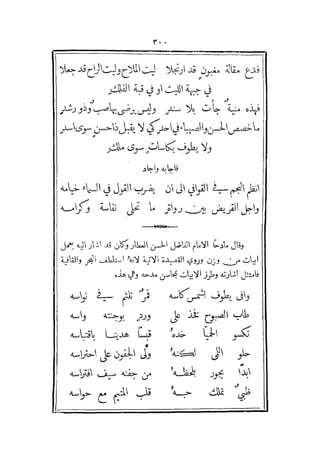 ٣٠٠
فدع مقالة مغبون قد ارتجلا ليت الملاح وليت الراح قد جعلا
في جبهة الليث او في قبة الفلك
فهذه منية جأت بلا سند وليس يرضى بها صب وذو رشد
ما خصص الحسن والصهباء في احد كي لا يقبل ذا حسن سوى اسد
ولا يطوف بكاسات سوى ملك
فاجابه واجاد
انظم النجم سيف القوافي الى ان يضرب القول في السماء خيامه
واجل القريض بين رواق ما تحلى نفاسة وكرامه
وقال مادحا الامام الفاضل الحسن العطار وكان قد اشار اليه بعمل
ابيات من وزن وروي القصيدة الاتية لانه استلطف البحر والقافية
فامتثل اشارته وطرز الابيات بمحاسن مدحه وهي هذه
وافى يطوف بشمس كاسه قمر تلثم سيف نواسه
طاب الصبوح فخذ على ورد بوجنته واسه
تكسو الحميا خده قبسا هدينا باقتباسه
حلو اللمى لكنه ولى الجفون على احتراسه
ابدا يجور بلحظه من جفنه سيف افتراسه
ظبي تملك حبه قلب المتيم مع حواسه